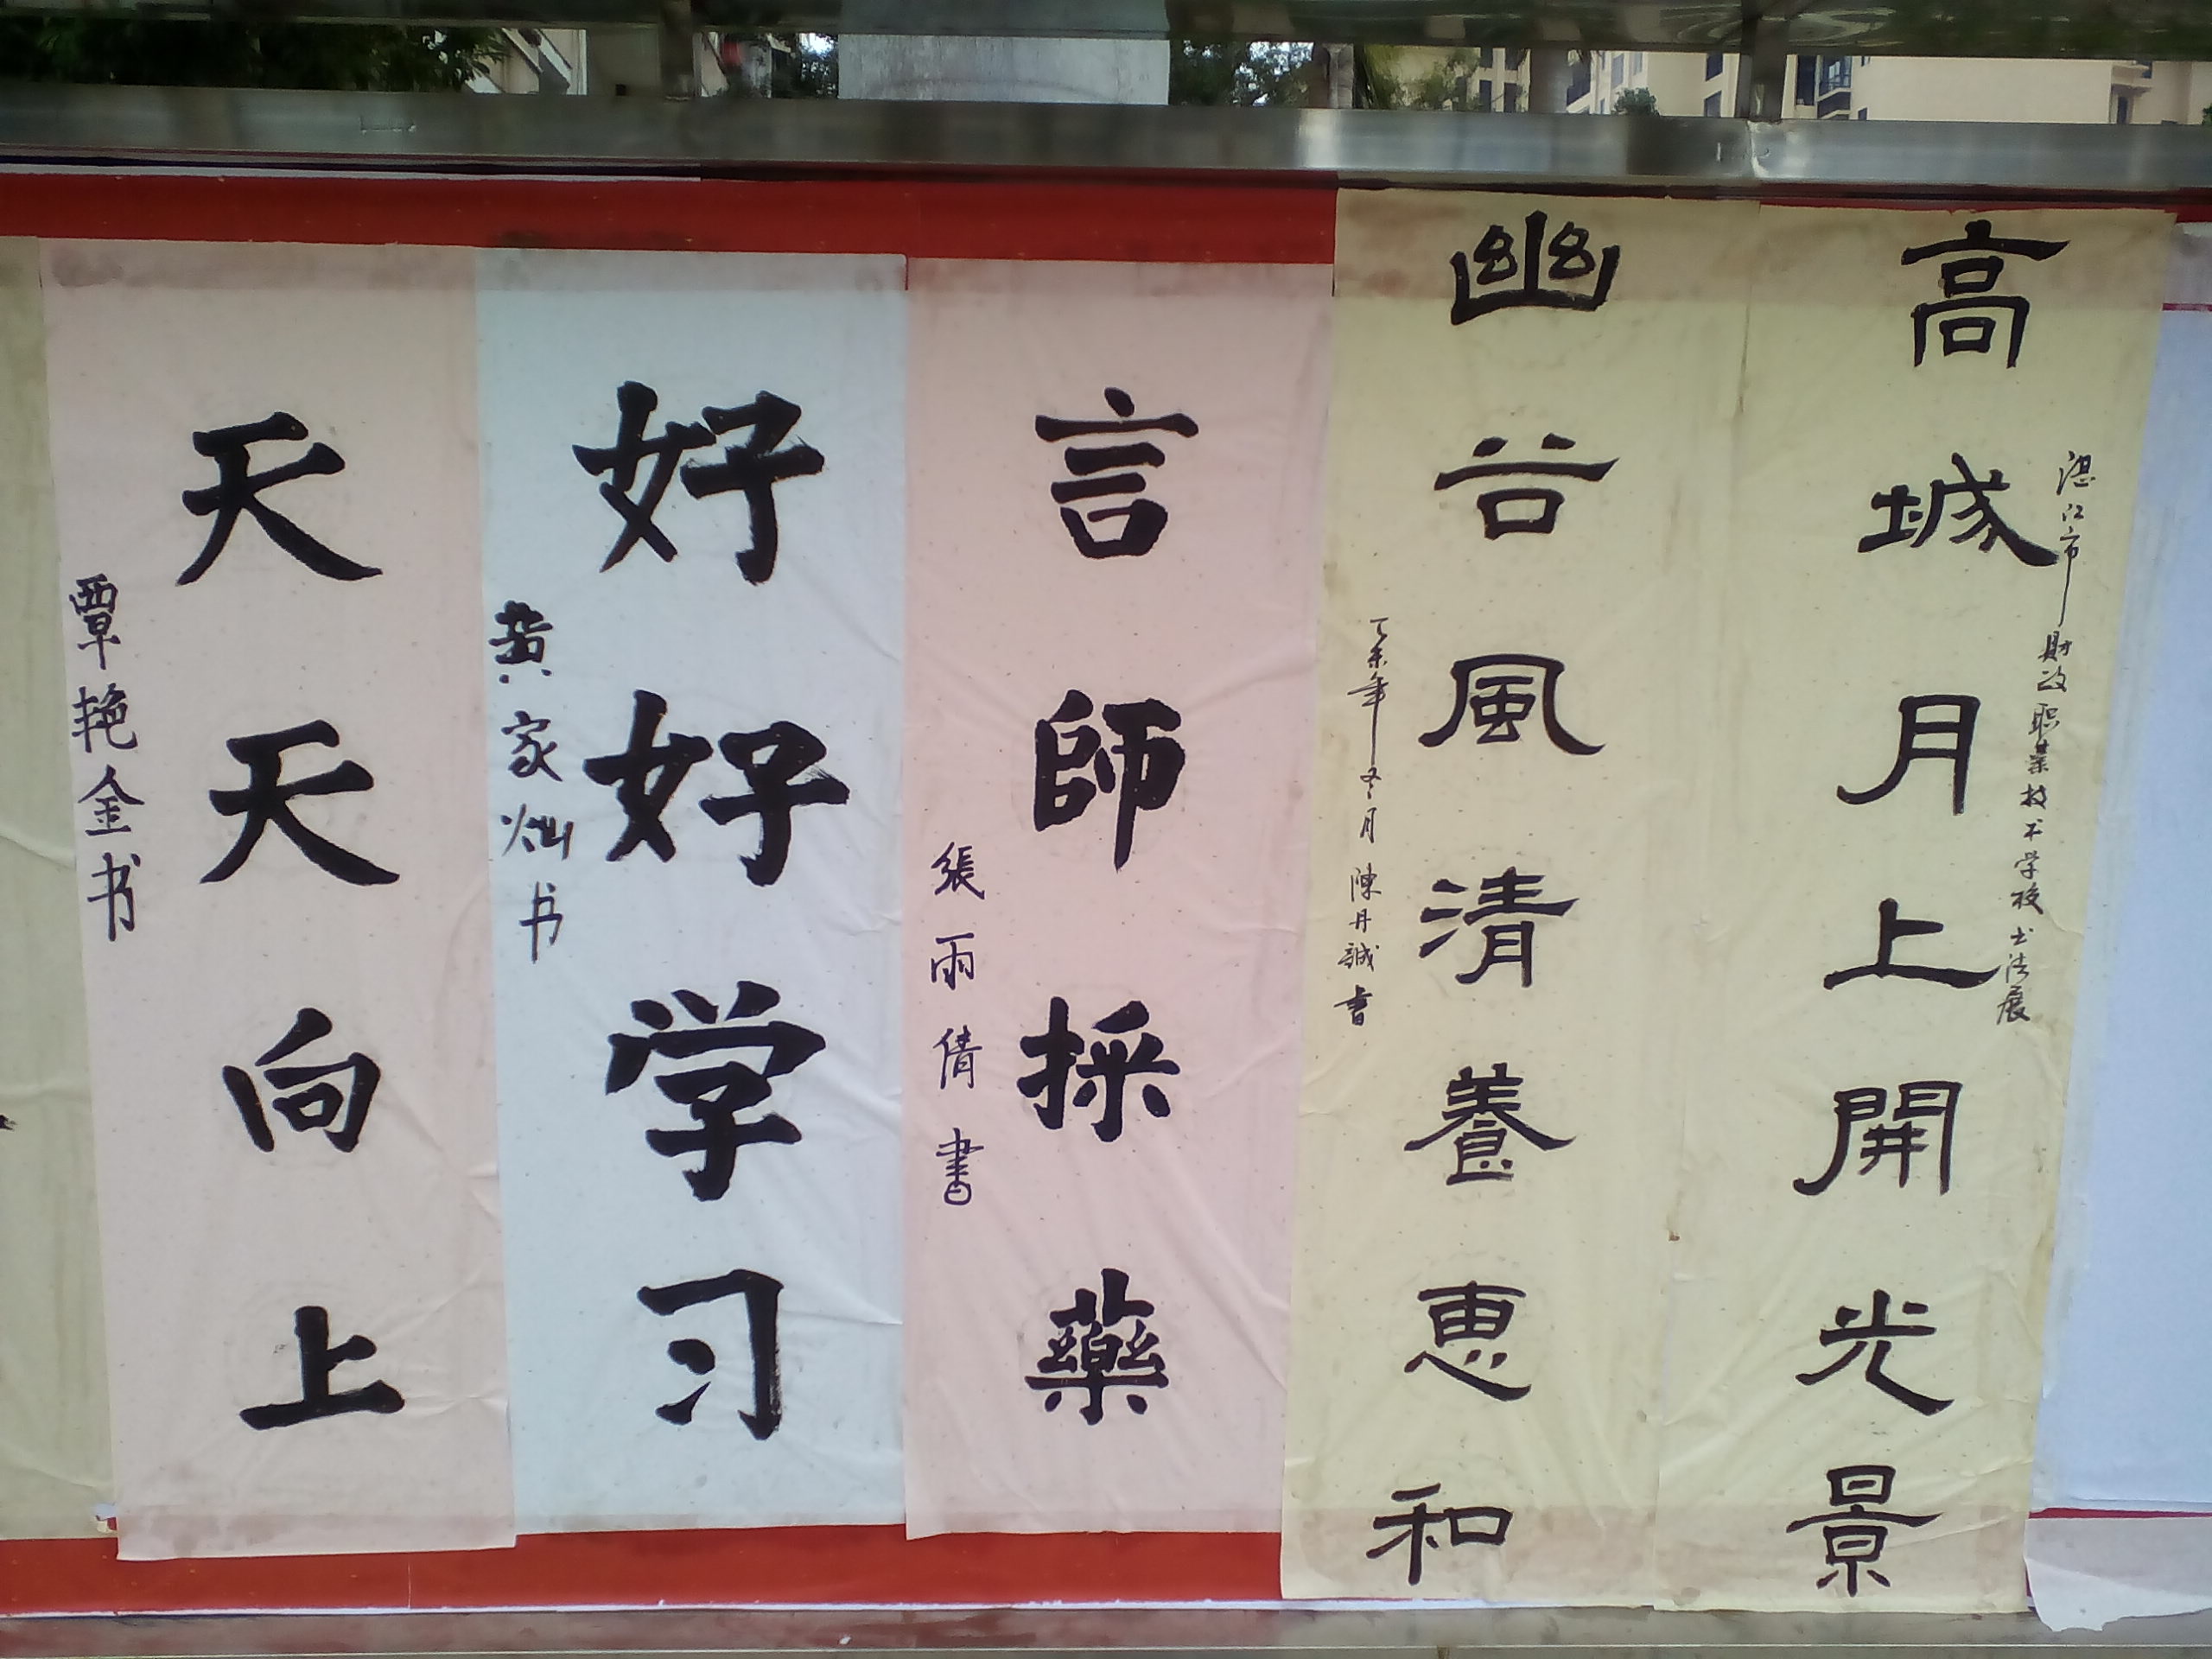 湛江市財政职業技术学校书法展
高城月上開光景
幽谷風清養惠和
年冬月 陳丹誠書
言師採藥
張雨倩書
好好学习
黄家灿书
天天向上
覃艳金书